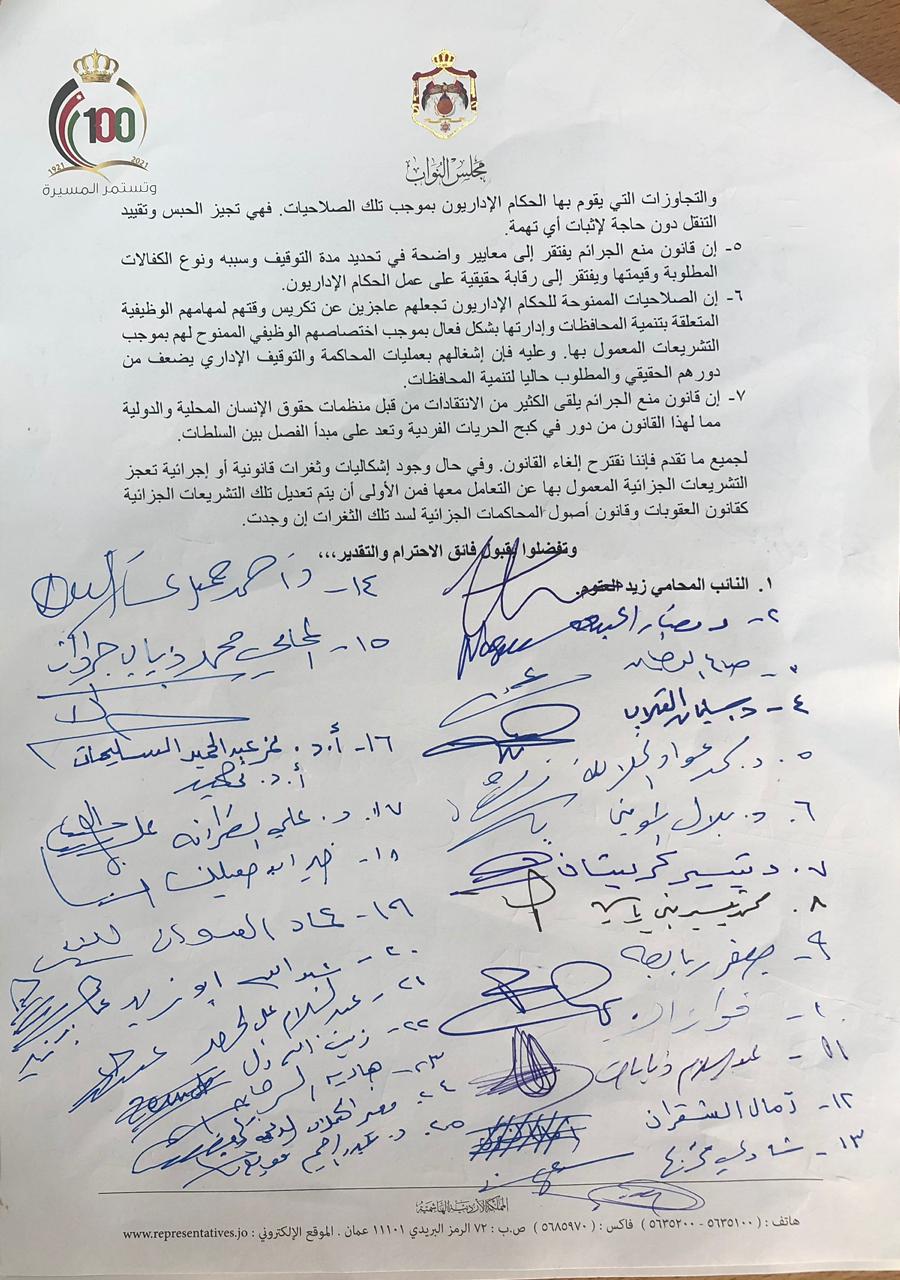 100
1921 2021
وتستمر المسيرة
مجلس النواب
والتجاوزات التي يقوم بها الحكام الإداريون بموجب تلك الصلاحيات. فهي تجيز الحبس وتقييد
التنقل دون حاجة لإثبات أي تهمة.
٥- إن قانون منع الجرائم يفتقر إلى معايير واضحة في تحديد مدة التوقيف وسببه ونوع الكفالات
المطلوبة وقيمتها ويفتقر إلى رقابة حقيقية على عمل الحكام الإداريون.
٦- إن الصلاحيات الممنوحة للحكام الإداريون تجعلهم عاجزين عن تكريس وقتهم لمهامهم الوظيفية
المتعلقة بتنمية المحافظات وإدارتها بشكل فعال بموجب اختصاصهم الوظيفي الممنوح لهم بموجب
التشريعات المعمول بها. وعليه فإن إشغالهم بعمليات المحاكمة والتوقيف الإداري يضعف من
دورهم الحقيقي والمطلوب حاليا لتنمية المحافظات.
٧- إن قانون منع الجرائم يلقى الكثير من الانتقادات من قبل منظمات حقوق الإنسان المحلية والدولية
مما لهذا القانون من دور في كبح الحريات الفردية وتعد على مبدأ الفصل بين السلطات.
لجميع ما تقدم فإننا نقترح إلغاء القانون. وفي حال وجود إشكاليات وثغرات قانونية أو إجرائية تعجز
التشريعات الجزائية المعمول بها عن التعامل معها فمن الأولى أن يتم تعديل تلك التشريعات الجزائية
كقانون العقوبات وقانون أصول المحاكمات الجزائية لسد تلك الثغرات إن وجدت.
وتفضلوا بقبول فائق الاحترام والتقدير،،،
١. النائب المحامي زيد العتوم.
٢- د. نصار
٤- د. سليمان القلاب
٥. د. محمد عواد
٦. د. بلال
٧. د تيسير كريشان
٨. محمد تيسير بني ياسين
٩- جعفر ربابعة
١٠- فواز
١١- عبد السلام ذيابات
١٢- آمال الشقران
١٣- شادي فريج
١٤- د. احمد
١٥- المحامي محمد ذياب جرادات
١٦- أ.د. عبد الحميد السليحات
أ.د.
١٧. د. علي الطراونه
١٨- خير ابو صعيليك
١٩- عماد العدوان
٢٠- عبد الله ابو زيد
٢١- عبد السلام
٢٢- زينب
٢٣- هادية
٢٤-
٢٥- د.
المملكة الأردنية الهاشمية
هاتف : ( ٥٦٣٥١٠٠ - ٥٦٣٥٢٠٠ ) فاكس : ( ٥٦٨٥٩٧٠ ) ص.ب : ٧٢ الرمز البريدي ١١١٠١ عمان . الموقع الإلكتروني : www.representatives.jo